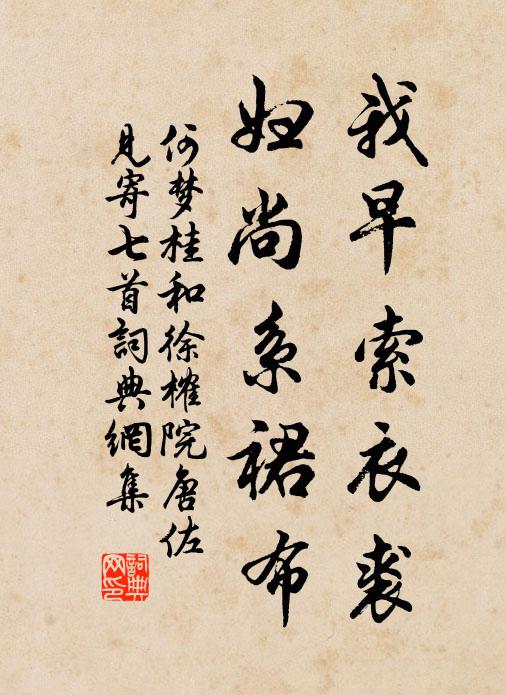 我早索衣裘
妇尚系裙布
何梦桂和徐榷院唐佐
见寄七首詞典網集
詞典网印